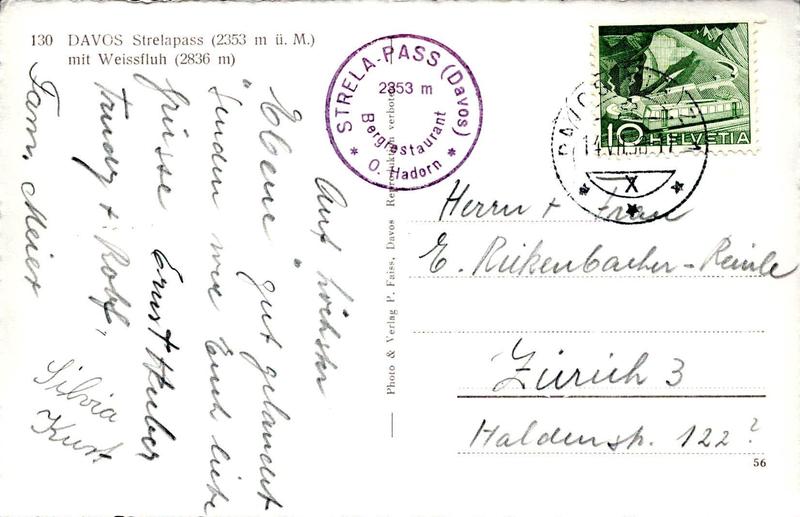 130 DAVOS Strelapass (2353 m ü. M.)
mit Weissfluh (2836 m)
STRELA-PASS (Davos)
2353 m
Bergrestaurant
* O. Hadorn *
10 HELVETIA
X
Auf höchster
"Ebene" gut gelandet
senden wir Euch liebe
Grüsse Ernst Huber
Trudy + Rolf,
Fam. Meier
Silvia
Kurt
Photo & Verlag P. Faiss, Davos Reproduktion verboten
Herrn + Frau
E. Rickenbacher-Reinle
Zürich 3
Haldenstr. 122?
56